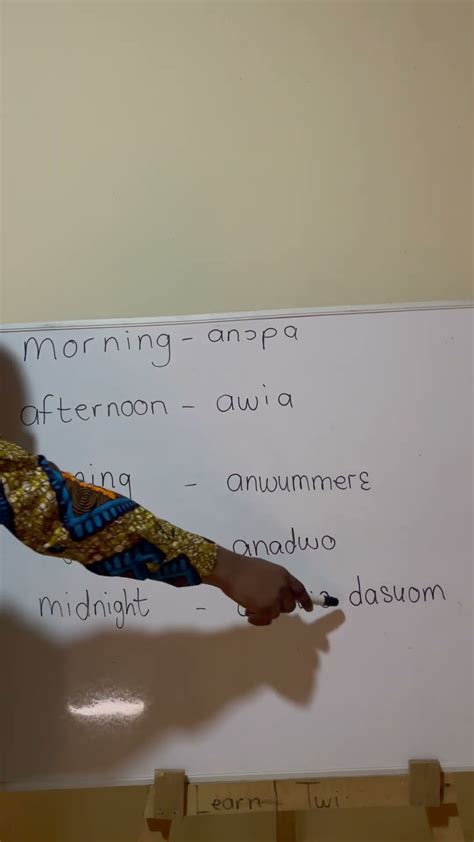 morning - anɔpa
afternoon - awia
- anwummerɛ
anadwo
midnight - dasuom
Learn Twi